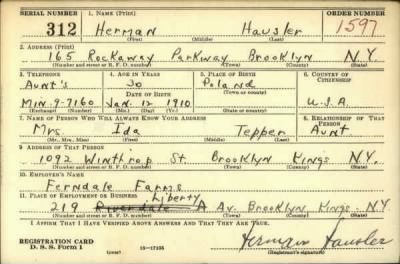 SERIAL NUMBER 1. NAME (Print) ORDER NUMBER
312 Herman Hausler 1597
(First) (Middle) (Last)
2. ADDRESS (Print)
165 Rockaway Parkway Brooklyn N.Y.
(Number and street or R. F. D. number) (Town) (County) (State)
3. TELEPHONE 4. AGE IN YEARS 5. PLACE OF BIRTH 6. COUNTRY OF CITIZENSHIP
Aunt's 30 Poland
DATE OF BIRTH (Town or county)
Min. 9-7160 Jan. 12 1910 U.S.A.
(Exchange) (Number) (Mo.) (Day) (Yr.) (State or country)
7. NAME OF PERSON WHO WILL ALWAYS KNOW YOUR ADDRESS 8. RELATIONSHIP OF THAT PERSON
Mrs. Ida Tepper Aunt
(Mr., Mrs., Miss) (First) (Middle) (Last)
9. ADDRESS OF THAT PERSON
1092 Winthrop St. Brooklyn Kings N.Y.
(Number and street or R. F. D. number) (Town) (County) (State)
10. EMPLOYER'S NAME
Ferndale Farms
11. PLACE OF EMPLOYMENT OR BUSINESS Liberty
219 Riverdale A Av. Brooklyn Kings NY
(Number and street or R. F. D. number) (Town) (County) (State)
I AFFIRM THAT I HAVE VERIFIED ABOVE ANSWERS AND THAT THEY ARE TRUE.
REGISTRATION CARD
D. S. S. Form 1 (over) 16-17105 Herman Hausler
(Registrant's signature)